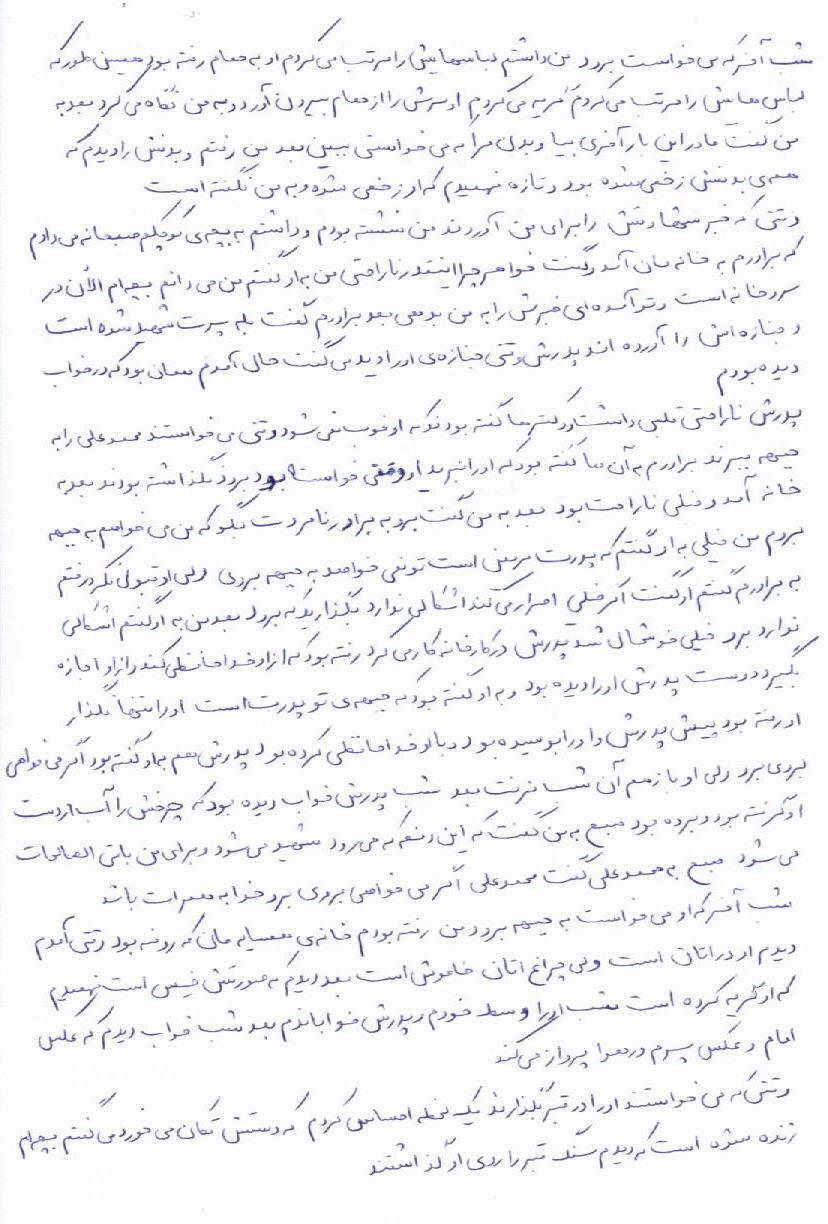 شب آخر که می خواست برود من داشتم لباسهایش را مرتب می کردم او به حمام رفته بود همین طور که
لباس هایش را مرتب می کردم گریه می کردم او سرش را از حمام بیرون آورد و به من نگاه می کرد بعد به
من گفت مادر این بار آخری بیا و بدن مرا که می خواستی ببین بعد من رفتم و بدنش را دیدم که
همه ی بدنش زخمی شده بود و تازه فهمیدم که او زخمی شده و به من نگفته است
وقتی که خبر شهادتش را برای من آوردند من نشسته بودم و داشتم به بچه ی کوچکم صبحانه می دادم
که برادرم به خانه مان آمد و گفت خواهر چرا اینقدر ناراحتی من به او گفتم من می دانم بچه ام الآن در
سردخانه است و تو آمده ای خبرش را به من بدهی بعد برادرم گفت بله پسرت شهید شده است
و جنازه اش را آورده اند پدرش وقتی جنازه ی او را دید می گفت حال آمدم همان بود که در خواب
دیده بودم
پدرش ناراحتی قلبی داشت و دکترها گفته بودند که او خوب نمی شود وقتی می خواستند محمدعلی را به
جبهه ببرند برادرم به آن ها گفته بود که او را نبرید او وقتی خواسته بود برود نگذاشته بودند بعد به
خانه آمد و خیلی ناراحت بود بعد به من گفت برو به برادر نامردت بگو که من می خواهم به جبهه
بروم من خیلی به او گفتم که پدرت مریض است تو نمی خواهد به جبهه بروی ولی او قبول نکرد رفتم
به برادرم گفتم او گفت اگر خیلی اصرار می کند اشکالی ندارد بگذارید که برود بعد من به او گفتم اشکالی
ندارد برو خیلی خوشحال شد پدرش در کارخانه کار می کرد رفته بود که از او خداحافظی کند و از او اجازه
بگیرد دوست پدرش او را دیده بود و به او گفته بود که جبهه ی تو پدرت است او را تنها نگذار
او رفته بود پیش پدرش و او را بوسیده بود و با او خداحافظی کرده بود پدرش هم به او گفته بود اگر می خواهی
بروی برو ولی او باز هم آن شب نرفت بعد شب پدرش خواب دیده بود که چرخش را آب از دست
او گرفته بود و برده بود صبح به من گفت که این دفعه که می رود شهید می شود و برای من باقی الصالحات
می شود صبح به محمدعلی گفت محمدعلی اگر می خواهی بروی برو خدا به همرات باشد
شب آخر که او می خواست به جبهه برود من رفته بودم خانه ی همسایه مان که روضه بود وقتی آمدم
دیدم او در اتاق است ولی چراغ اتاق خاموش است بعد دیدم که صورتش خیس است فهمیدم
که او گریه کرده است شب او را وسط خودم و پدرش خواباندم بعد شب خواب دیدم که عکس
امام و عکس پسرم در هوا پرواز می کند
وقتی که می خواستند او را در قبر بگذارند یک لحظه احساس کردم که دستش تکان می خورد می گفتم بچه ام
زنده شده است که دیدم سنگ قبر را روی او گذاشتند